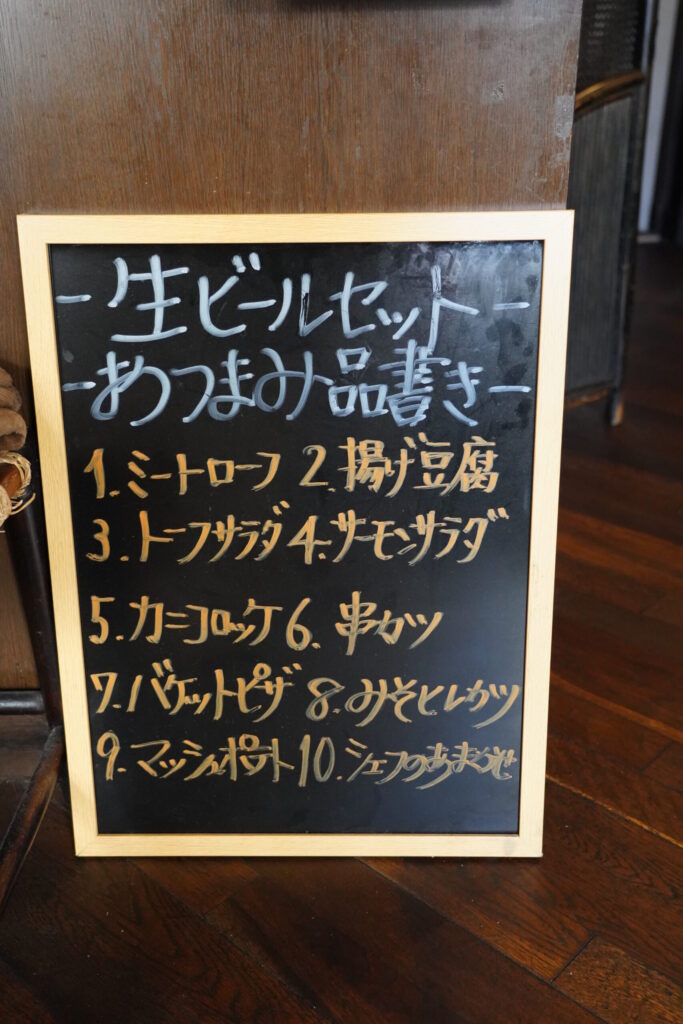 -生ビールセット-
-おつまみ品書き-
1.ミートローフ 2.揚げ豆腐
3.トーフサラダ 4.サーモンサラダ
5.カニコロッケ 6.串カツ
7.バケットピザ 8.みそヒレカツ
9.マッシュポテト 10.シェフのおまかせ